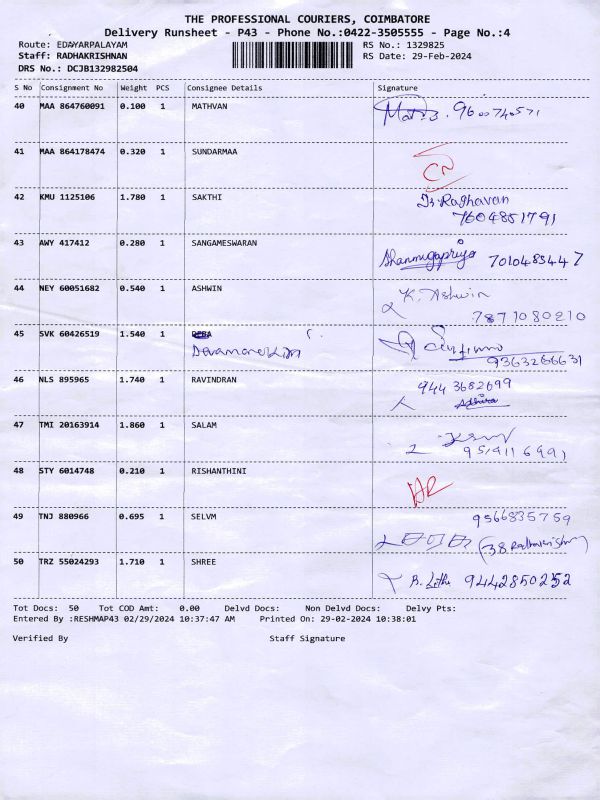 THE PROFESSIONAL COURIERS, COIMBATORE
Delivery Runsheet - P43 - Phone No.:0422-3505555 - Page No.:4
Route: EDAYARPALAYAM RS No.: 1329825
Staff: RADHAKRISHNAN RS Date: 29-Feb-2024
DRS No.: DCJB132982504
S No Consignment No Weight PCS Consignee Details Signature
40 MAA 864760091 0.100 1 MATHVAN 9600740571
41 MAA 864178474 0.320 1 SUNDARMAA
42 KMU 1125106 1.780 1 SAKTHI Raghavan
7604851791
43 AWY 417412 0.280 1 SANGAMESWARAN Shanmugapriya 7010483447
44 NEY 60051682 0.540 1 ASHWIN K. Ashwin
7871080210
45 SVK 60426519 1.540 1
9363266631
46 NLS 895965 1.740 1 RAVINDRAN 944 3682699
47 TMI 20163914 1.860 1 SALAM
48 STY 6014748 0.210 1 RISHANTHINI
49 TNJ 880966 0.695 1 SELVM 9566835759
50 TRZ 55024293 1.710 1 SHREE 9442850252
Tot Docs: 50 Tot COD Amt: 0.00 Delvd Docs: Non Delvd Docs: Delvy Pts:
Entered By :RESHMAP43 02/29/2024 10:37:47 AM Printed On: 29-02-2024 10:38:01
Verified By Staff Signature